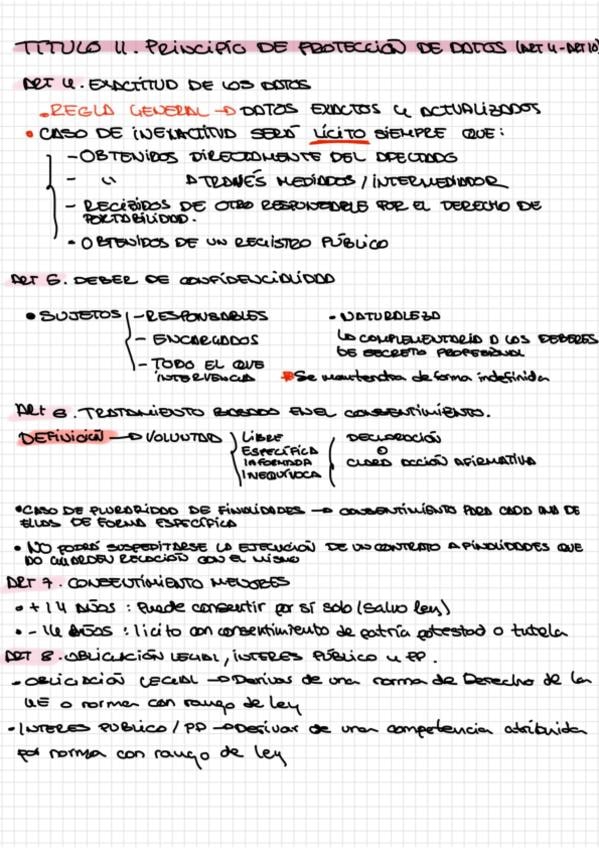 TÍTULO II. Principio DE PROTECCIÓN DE DATOS (ART 4-ART 10)
ART 4. EXACTITUD DE LOS DATOS
• REGLA GENERAL → DATOS EXACTOS Y ACTUALIZADOS
• CASO DE INEXACTITUD SERÁ LÍCITO SIEMPRE QUE:
- OBTENIDOS DIRECTAMENTE DEL AFECTADO
- " A TRAVÉS MEDIADOS / INTERMEDIADOR
- RECIBIDOS DE OTRO RESPONSABLE POR EL DERECHO DE
PORTABILIDAD.
- OBTENIDOS DE UN REGISTRO PÚBLICO
ART 5. DEBER DE CONFIDENCIALIDAD
• SUJETOS - RESPONSABLES - NATURALEZA
- ENCARGADOS COMPLEMENTARIA A LOS DEBERES
DE SECRETO PROFESIONAL
- TODO EL QUE
INTERVENGA Se mantendra de forma indefinida
Art 6. TRATAMIENTO BASADO EN EL CONSENTIMIENTO.
DEFINICIÓN → VOLUNTAD LIBRE DECLARACIÓN
ESPECÍFICA O
INFORMADA CLARA ACCIÓN AFIRMATIVA
INEQUÍVOCA
• CASO DE PLURARIDAD DE FINALIDADES → CONSENTIMIENTO PARA CADA UNA DE
ELLAS DE FORMA ESPECÍFICA
• NO PODRÁ SUSPEDITARSE LA EJECUCIÓN DE UN CONTRATO A FINALIDADES QUE
NO GUARDEN RELACIÓN CON EL MISMO
ART 7. CONSENTIMIENTO MENORES
• + 14 AÑOS : Puede consentir por sí solo (salvo ley)
• - 14 AÑOS : licito con consentimiento de patria potestad o tutela
ART 8. OBLIGACIÓN LEGAL, INTERES PÚBLICO Y PP.
• OBLIGACIÓN LEGAL → Derivar de una norma de Derecho de la
UE o norma con rango de ley
• INTERES PUBLICO / PP → Derivar de una competencia atribuida
por norma con rango de ley